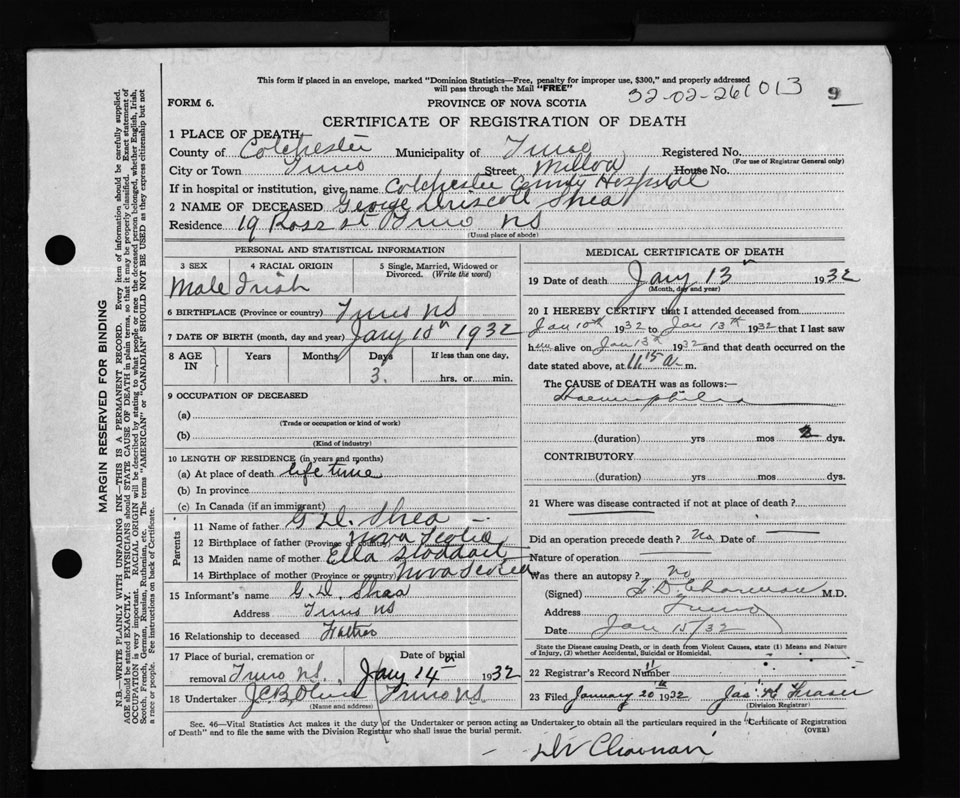 This form if placed in an envelope, marked "Dominion Statistics—Free, penalty for improper use, $300," and properly addressed
will pass through the Mail "FREE"
32-02-261013 9
FORM 6. PROVINCE OF NOVA SCOTIA
CERTIFICATE OF REGISTRATION OF DEATH
1 PLACE OF DEATH
County of Colchester Municipality of Truro Registered No.
(For use of Registrar General only)
City or Town Truro Street House No.
If in hospital or institution, give name Colchester County Hospital
2 NAME OF DECEASED George Driscoll Shea
Residence 19 Ross st Truro NS
(Usual place of abode)
PERSONAL AND STATISTICAL INFORMATION
3 SEX 4 RACIAL ORIGIN 5 Single, Married, Widowed or
Divorced. (Write the word)
Male Irish
6 BIRTHPLACE (Province or country) Truro NS
7 DATE OF BIRTH (month, day and year) Jany 10th 1932
8 AGE IN Years Months Days If less than one day,
3. hrs. or min.
9 OCCUPATION OF DECEASED
(a)
(Trade or occupation or kind of work)
(b)
(Kind of industry)
10 LENGTH OF RESIDENCE (in years and months)
(a) At place of death life time
(b) In province
(c) In Canada (if an immigrant)
Parents
11 Name of father G D. Shea
12 Birthplace of father (Province or country) Nova Scotia
13 Maiden name of mother Ella Stoddart
14 Birthplace of mother (Province or country) Nova Scotia
15 Informant's name G. D. Shea
Address Truro NS
16 Relationship to deceased Father
17 Place of burial, cremation or Date of burial
removal Truro NS. Jany 14th 1932
18 Undertaker Truro NS.
(Name and address)
MEDICAL CERTIFICATE OF DEATH
19 Date of death Jany 13th 1932
(Month, day and year)
20 I HEREBY CERTIFY that I attended deceased from
Jan 10th 1932 to Jan 13th 1932 that I last saw
him alive on Jan 13th 1932 and that death occurred on the
date stated above, at 11 15 a. m.
The CAUSE of DEATH was as follows:—
Haemophilia
(duration) yrs mos 2 dys.
CONTRIBUTORY
(duration) yrs mos dys.
21 Where was disease contracted if not at place of death?
Did an operation precede death? No Date of —
Nature of operation —
Was there an autopsy? No
(Signed) M.D.
Address Truro
Date Jan 15/32
State the Disease causing Death, or in deaths from Violent Causes, state (1) Means and Nature
of Injury, (2) whether Accidental, Suicidal or Homicidal.
22 Registrar's Record Number 11
23 Filed January 20th 1932 Jas H Fraser
(Division Registrar)
Sec. 46—Vital Statistics Act makes it the duty of the Undertaker or person acting as Undertaker to obtain all the particulars required in the "Certificate of Registration
of Death" and to file the same with the Division Registrar who shall issue the burial permit. (OVER)
MARGIN RESERVED FOR BINDING
N.B.—WRITE PLAINLY WITH UNFADING INK—THIS IS A PERMANENT RECORD. Every item of information should be carefully supplied.
AGE should be stated EXACTLY. PHYSICIANS should STATE CAUSE OF DEATH in plain terms, so that it may be properly classified. Exact statement of
OCCUPATION is very important. RACIAL ORIGIN will be described by stating to what people or race the deceased person belonged, whether English, Irish,
Scotch, French, German, Russian, Ruthenian, etc. The terms "AMERICAN" or "CANADIAN" SHOULD NOT BE USED as they express citizenship but not
a race or people. See instructions on back of Certificate.